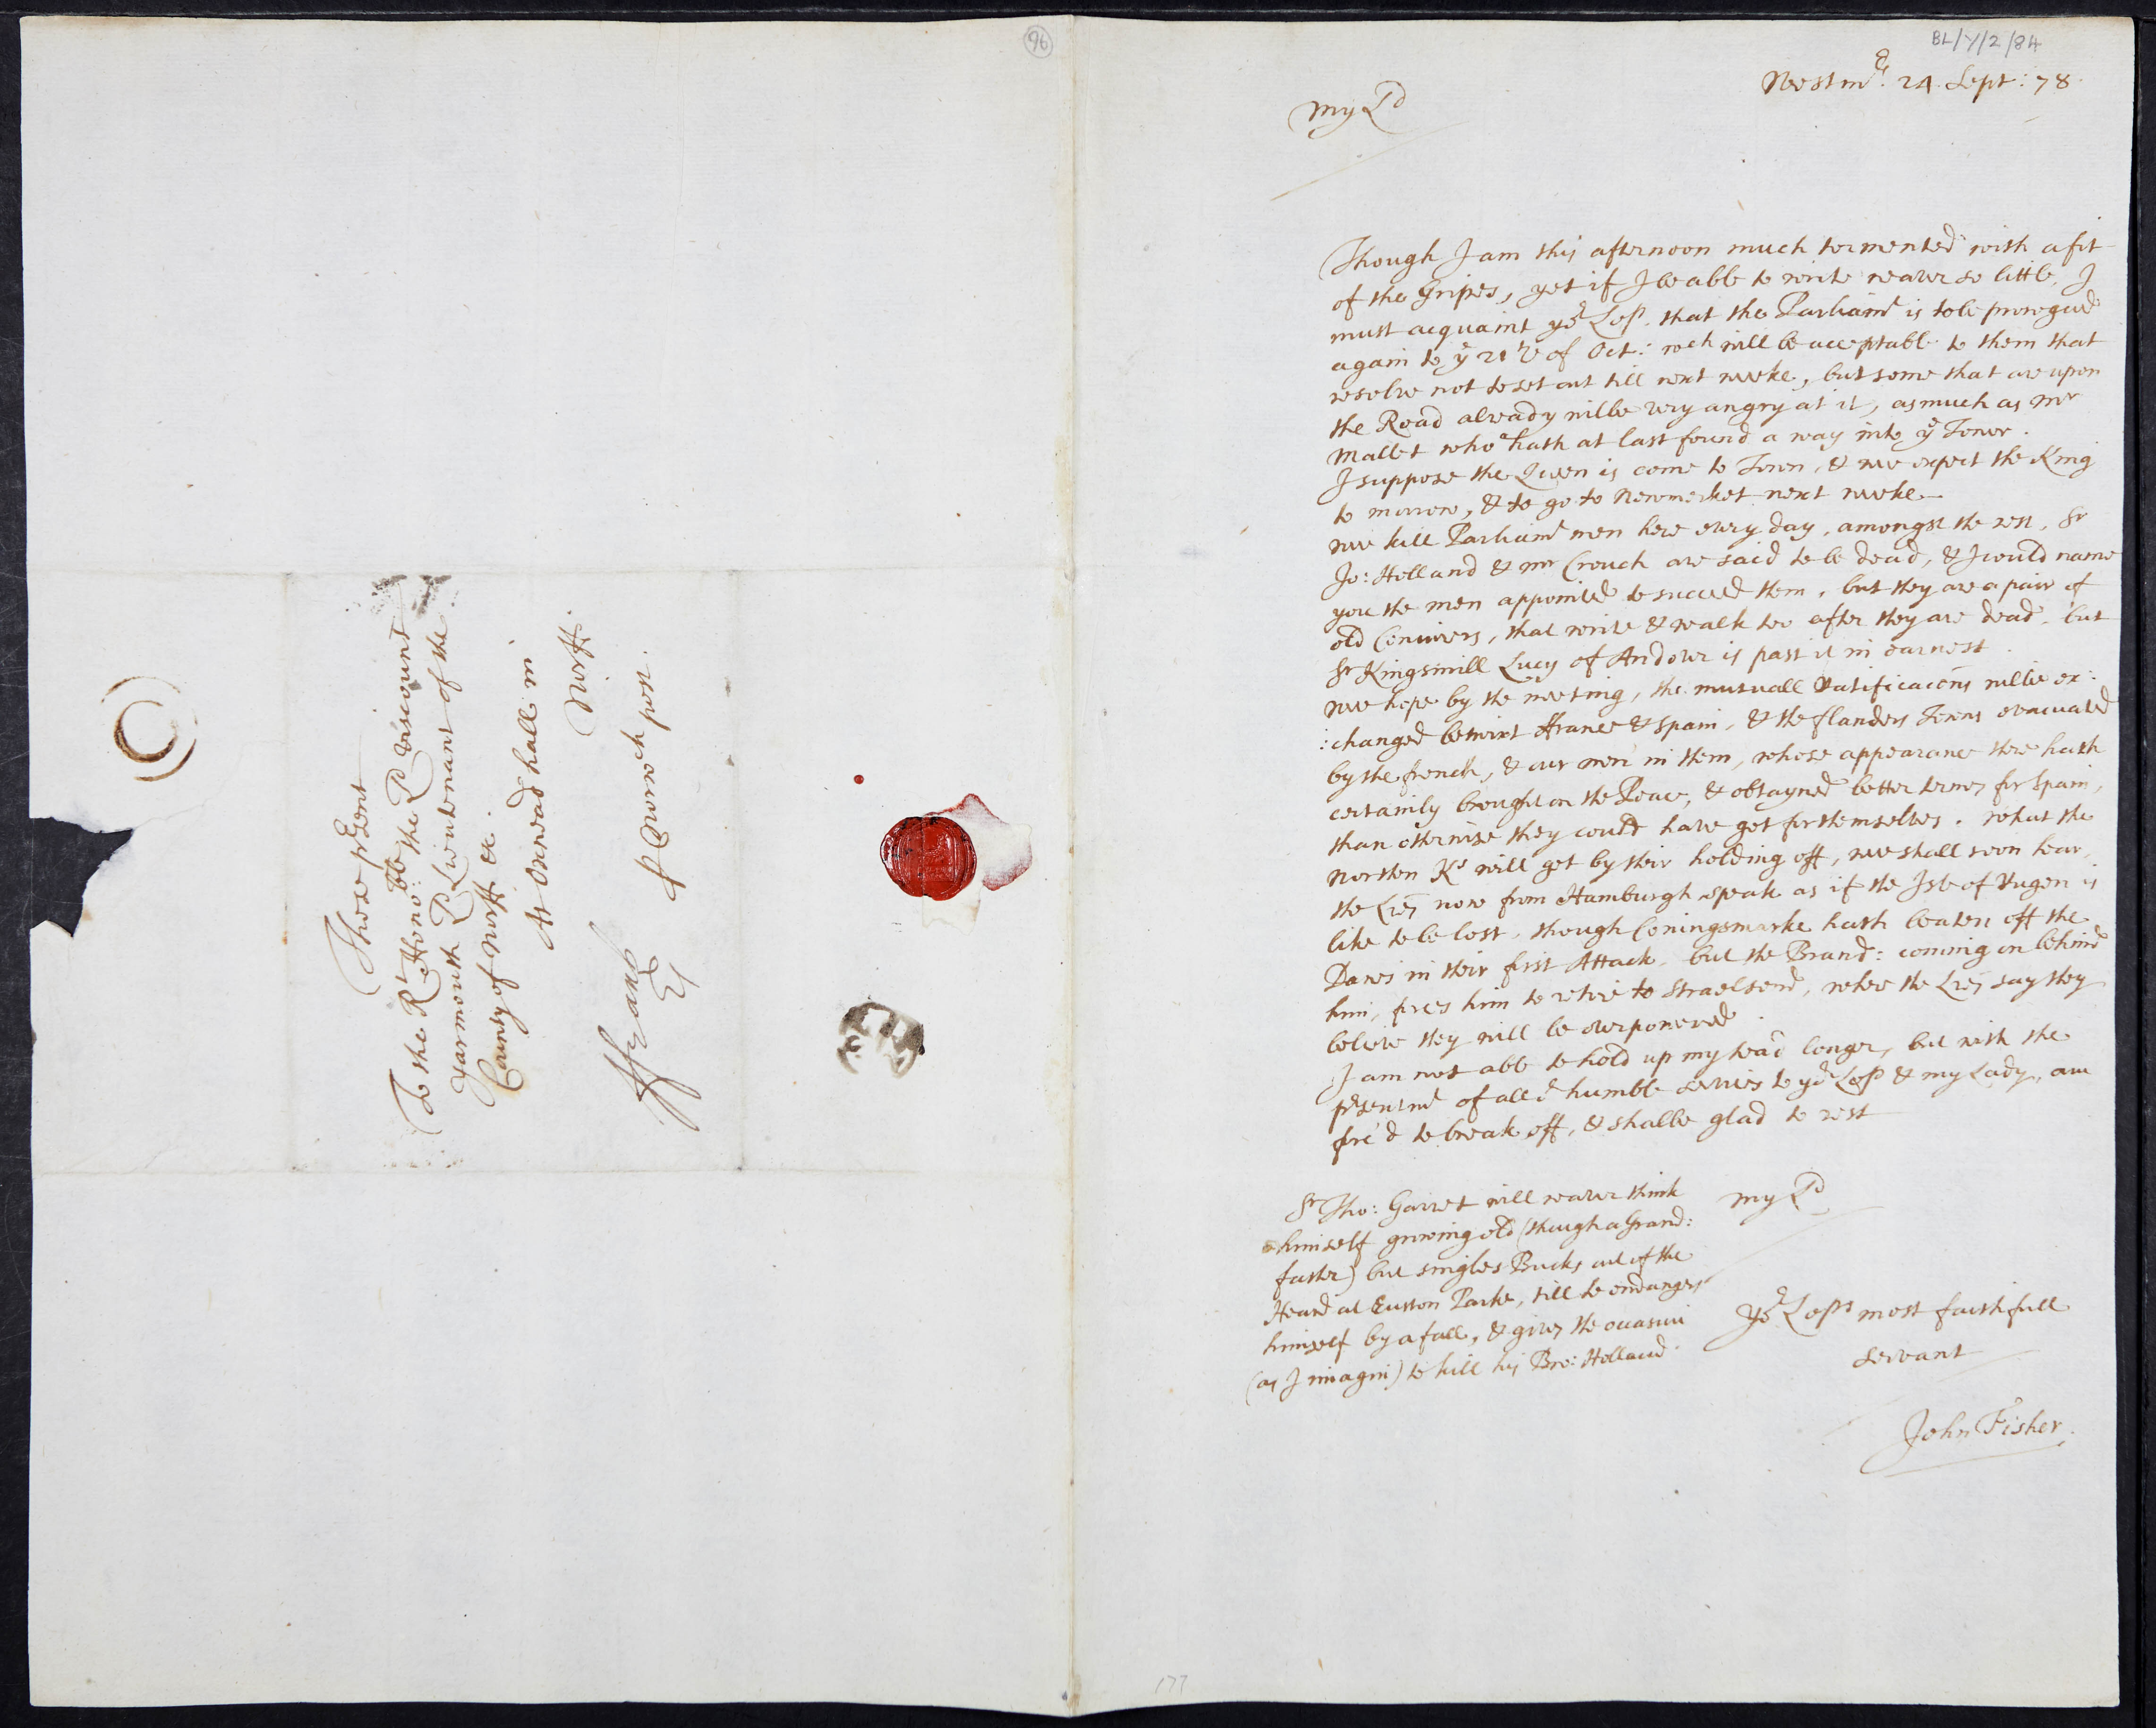 96
These prsent
To the Rt Honoble: the Ld Viscount
Yarmouth Ld Lieutenant of the
County of Norff &c.
At Oxnead hall in
Norff.
ffranck
p Norwch post.
BL/Y/2/84
Westmr. 24. Sept: 78.
My Ld
Though I am this afternoon much tormented with a fit
of the Gripes, yet if I be able to write neaver so little, I
must acquaint yor Lopp. that the Parliamt is to be prorogued
again to ye 21th of Oct: wch will be acceptable to them that
resolve not to set out till next weeke, but some that are upon
the Road already wilbe very angry at it, as much as Mr
Mallet who hath at last found a way into ye Tower.
I suppose the Queen is come to Town, & wee expect the King
to morrow, & to go to Newmerket next weeke.
wee kill Parliamt men here every day, amongst the rest, Sr
Jo: Holland & Mr Crouch are said to be dead, & I could name
you the men appointed to succeed them, but they are a pair of
old Conivers, that write & walk too after they are dead. but
Sr Kingsmill Lucy of Andover is past it in earnest.
wee hope by the meeting, the mutuall Ratificacons wilbe ex:
:changed betwixt ffrance & Spain, & the flanders Towns evacuated
by the french, & our men in them, whose appearance there hath
certainly brought on the Peace, & obtayned better termes for Spain,
than otherwise they could have got for themselves. what the
Northen Ks will get by their holding off, wee shall soon hear,
the Lres now from Hamburgh speak as if the Isle of Rugen is
like to be lost, though Coningsmarke hath beaten off the
Danes in their first Attack. but the Brand: coming on behind
him, forces him to retire to Straelsond, where the Lres say they
believe they will be overpowered.
I am not able to hold up my head longer, but with the
prsentmt of all humble services to yor Lopp & my Lady, am
forc'd to break off, & shalbe glad to rest
My Ld
Yor Lopps most faithfull
Servant
John Fisher.
Sr Tho: Garret will neaver think
himself growing old (though a Grand:
father) but singles Bucks out of the
Heard at Euston Parke, till he endangers
himself by a fall, & gives the occasion
(as I imagin) to kill his Bro: Holland.
177